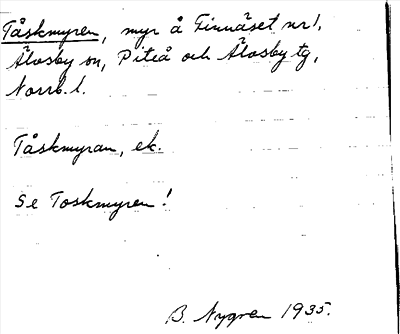 Tåskmyren, myr å Finnäset nr 1,
Älvsby sn, Piteå och Älvsby tg,
Norrb. l.
Tåskmyran, ek.
Se Toskmyren!
B. Nygren 1935.